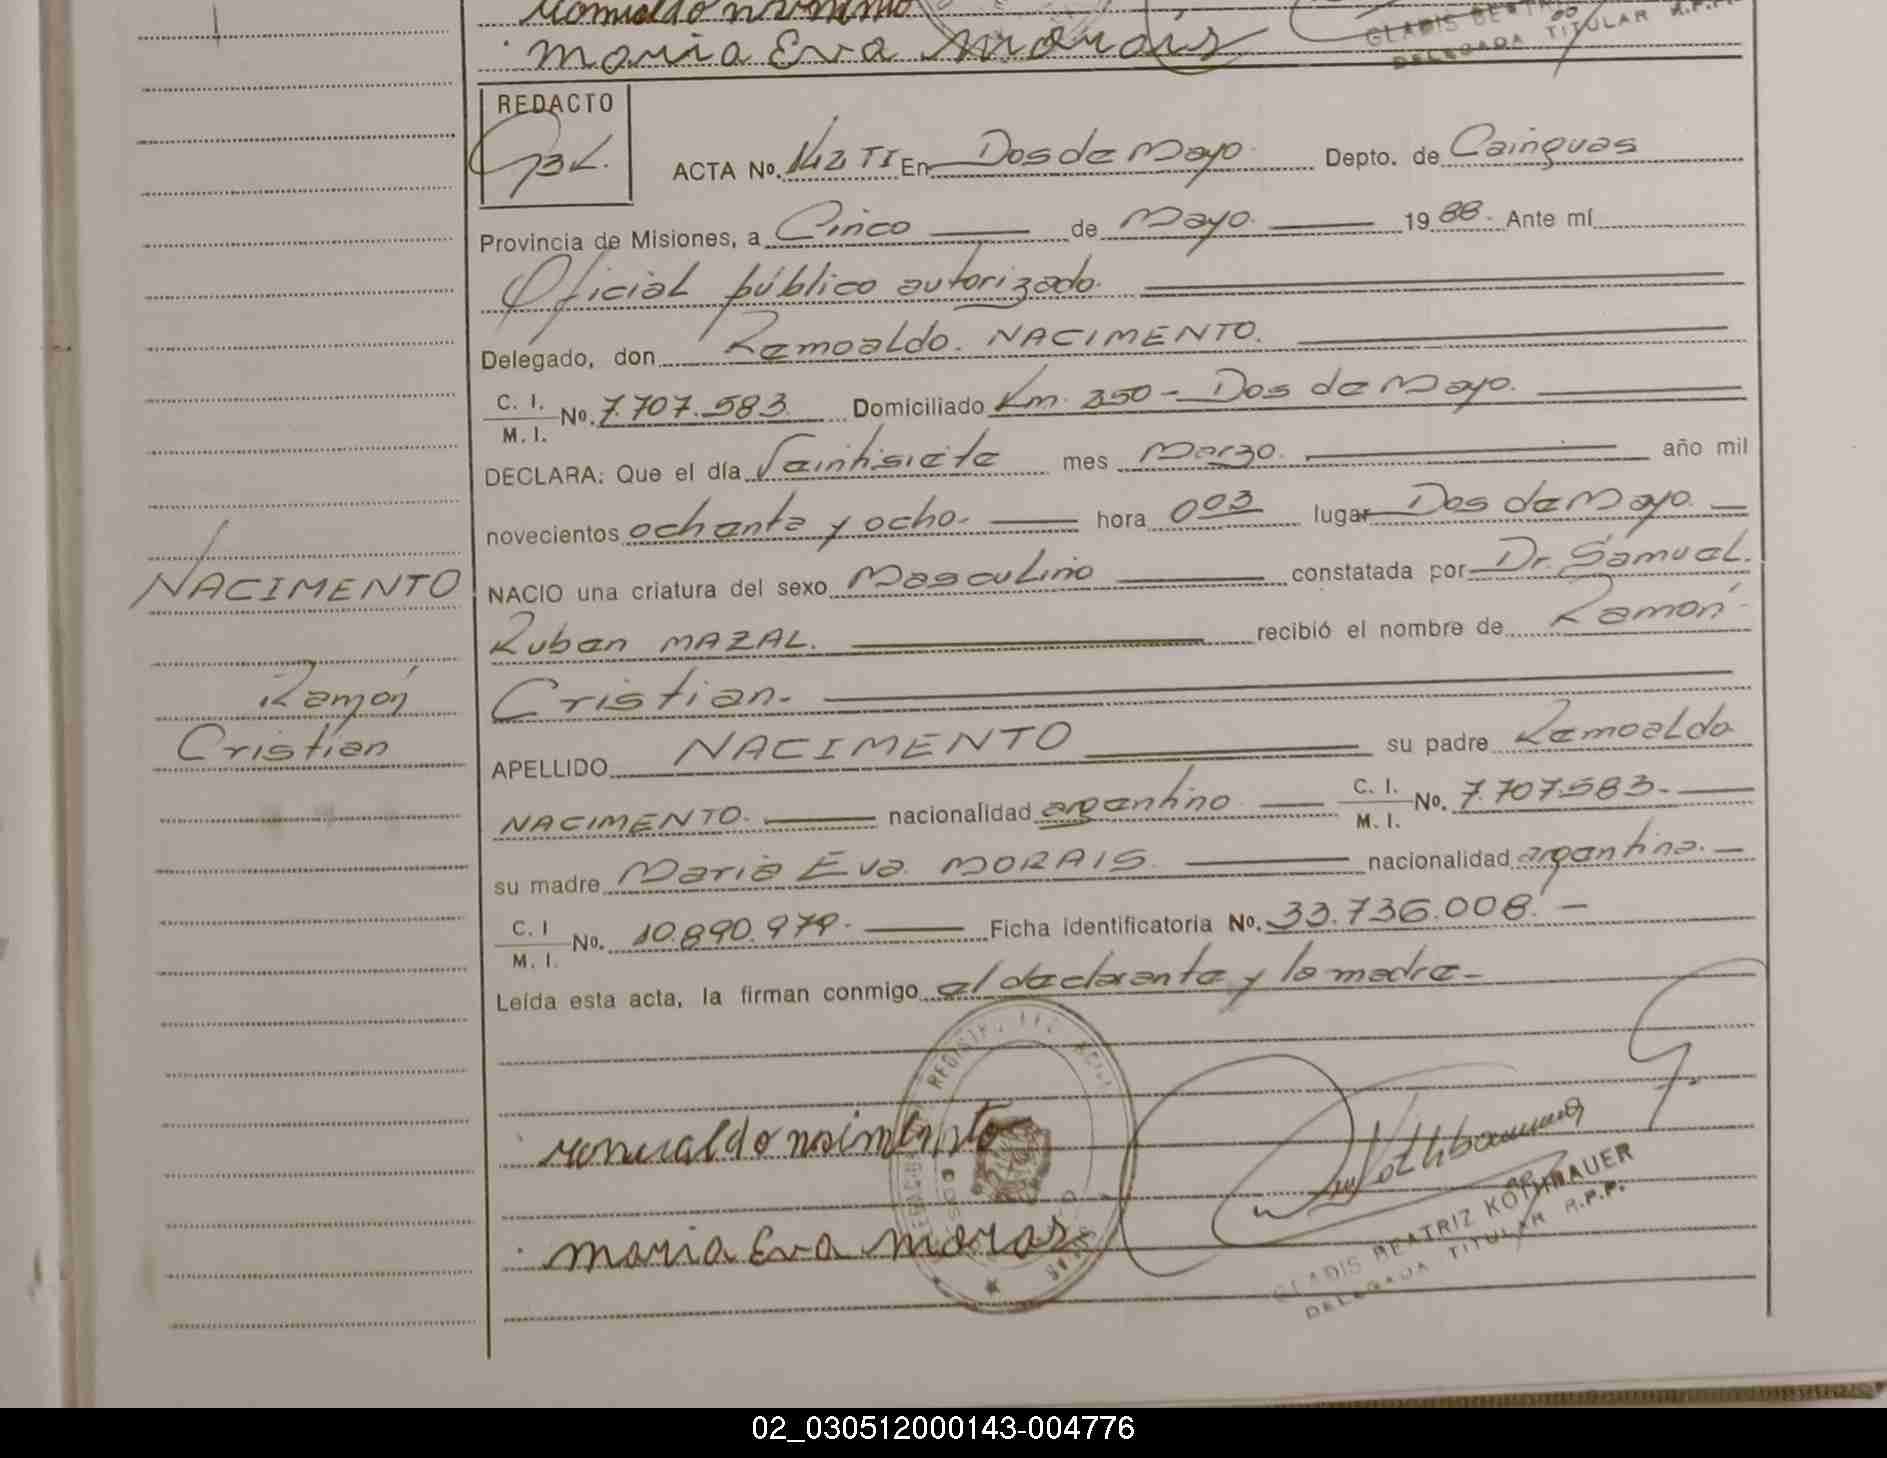 Maria Eva Morais
GLADIS BEATRIZ
DELEGADA TITULAR R.P.P.
REDACTO
ACTA No. 142 TI En Dos de Mayo Depto. de Cainguas
Provincia de Misiones, a Cinco de Mayo 1988. Ante mí
Oficial público autorizado.
Delegado, don Remoaldo. NACIMENTO.
C. I.
M. I. No. 7.707.583 Domiciliado Km. 250 - Dos de Mayo.
DECLARA: Que el día Veintisiete mes Marzo. año mil
novecientos ochenta y ocho. hora 003 lugar Dos de Mayo.
NACIO una criatura del sexo Masculino constatada por Dr. Samuel.
Ruben MAZAL. recibió el nombre de Ramón
Cristian.-
NACIMENTO
Ramón
Cristian
APELLIDO NACIMENTO su padre Remoaldo
NACIMENTO. nacionalidad argentino C. I.
M. I. No. 7.707.583.-
su madre Maria Eva MORAIS nacionalidad argentina.-
C. I
M. I. No. 10.890.979.- Ficha identificatoria No. 33.736.008.-
Leída esta acta, la firman conmigo el declarante y la madre-
maria Eva Moras
GLADIS BEATRIZ KOTHBAUER
DELEGADA TITULAR R.P.P.
02_030512000143-004776